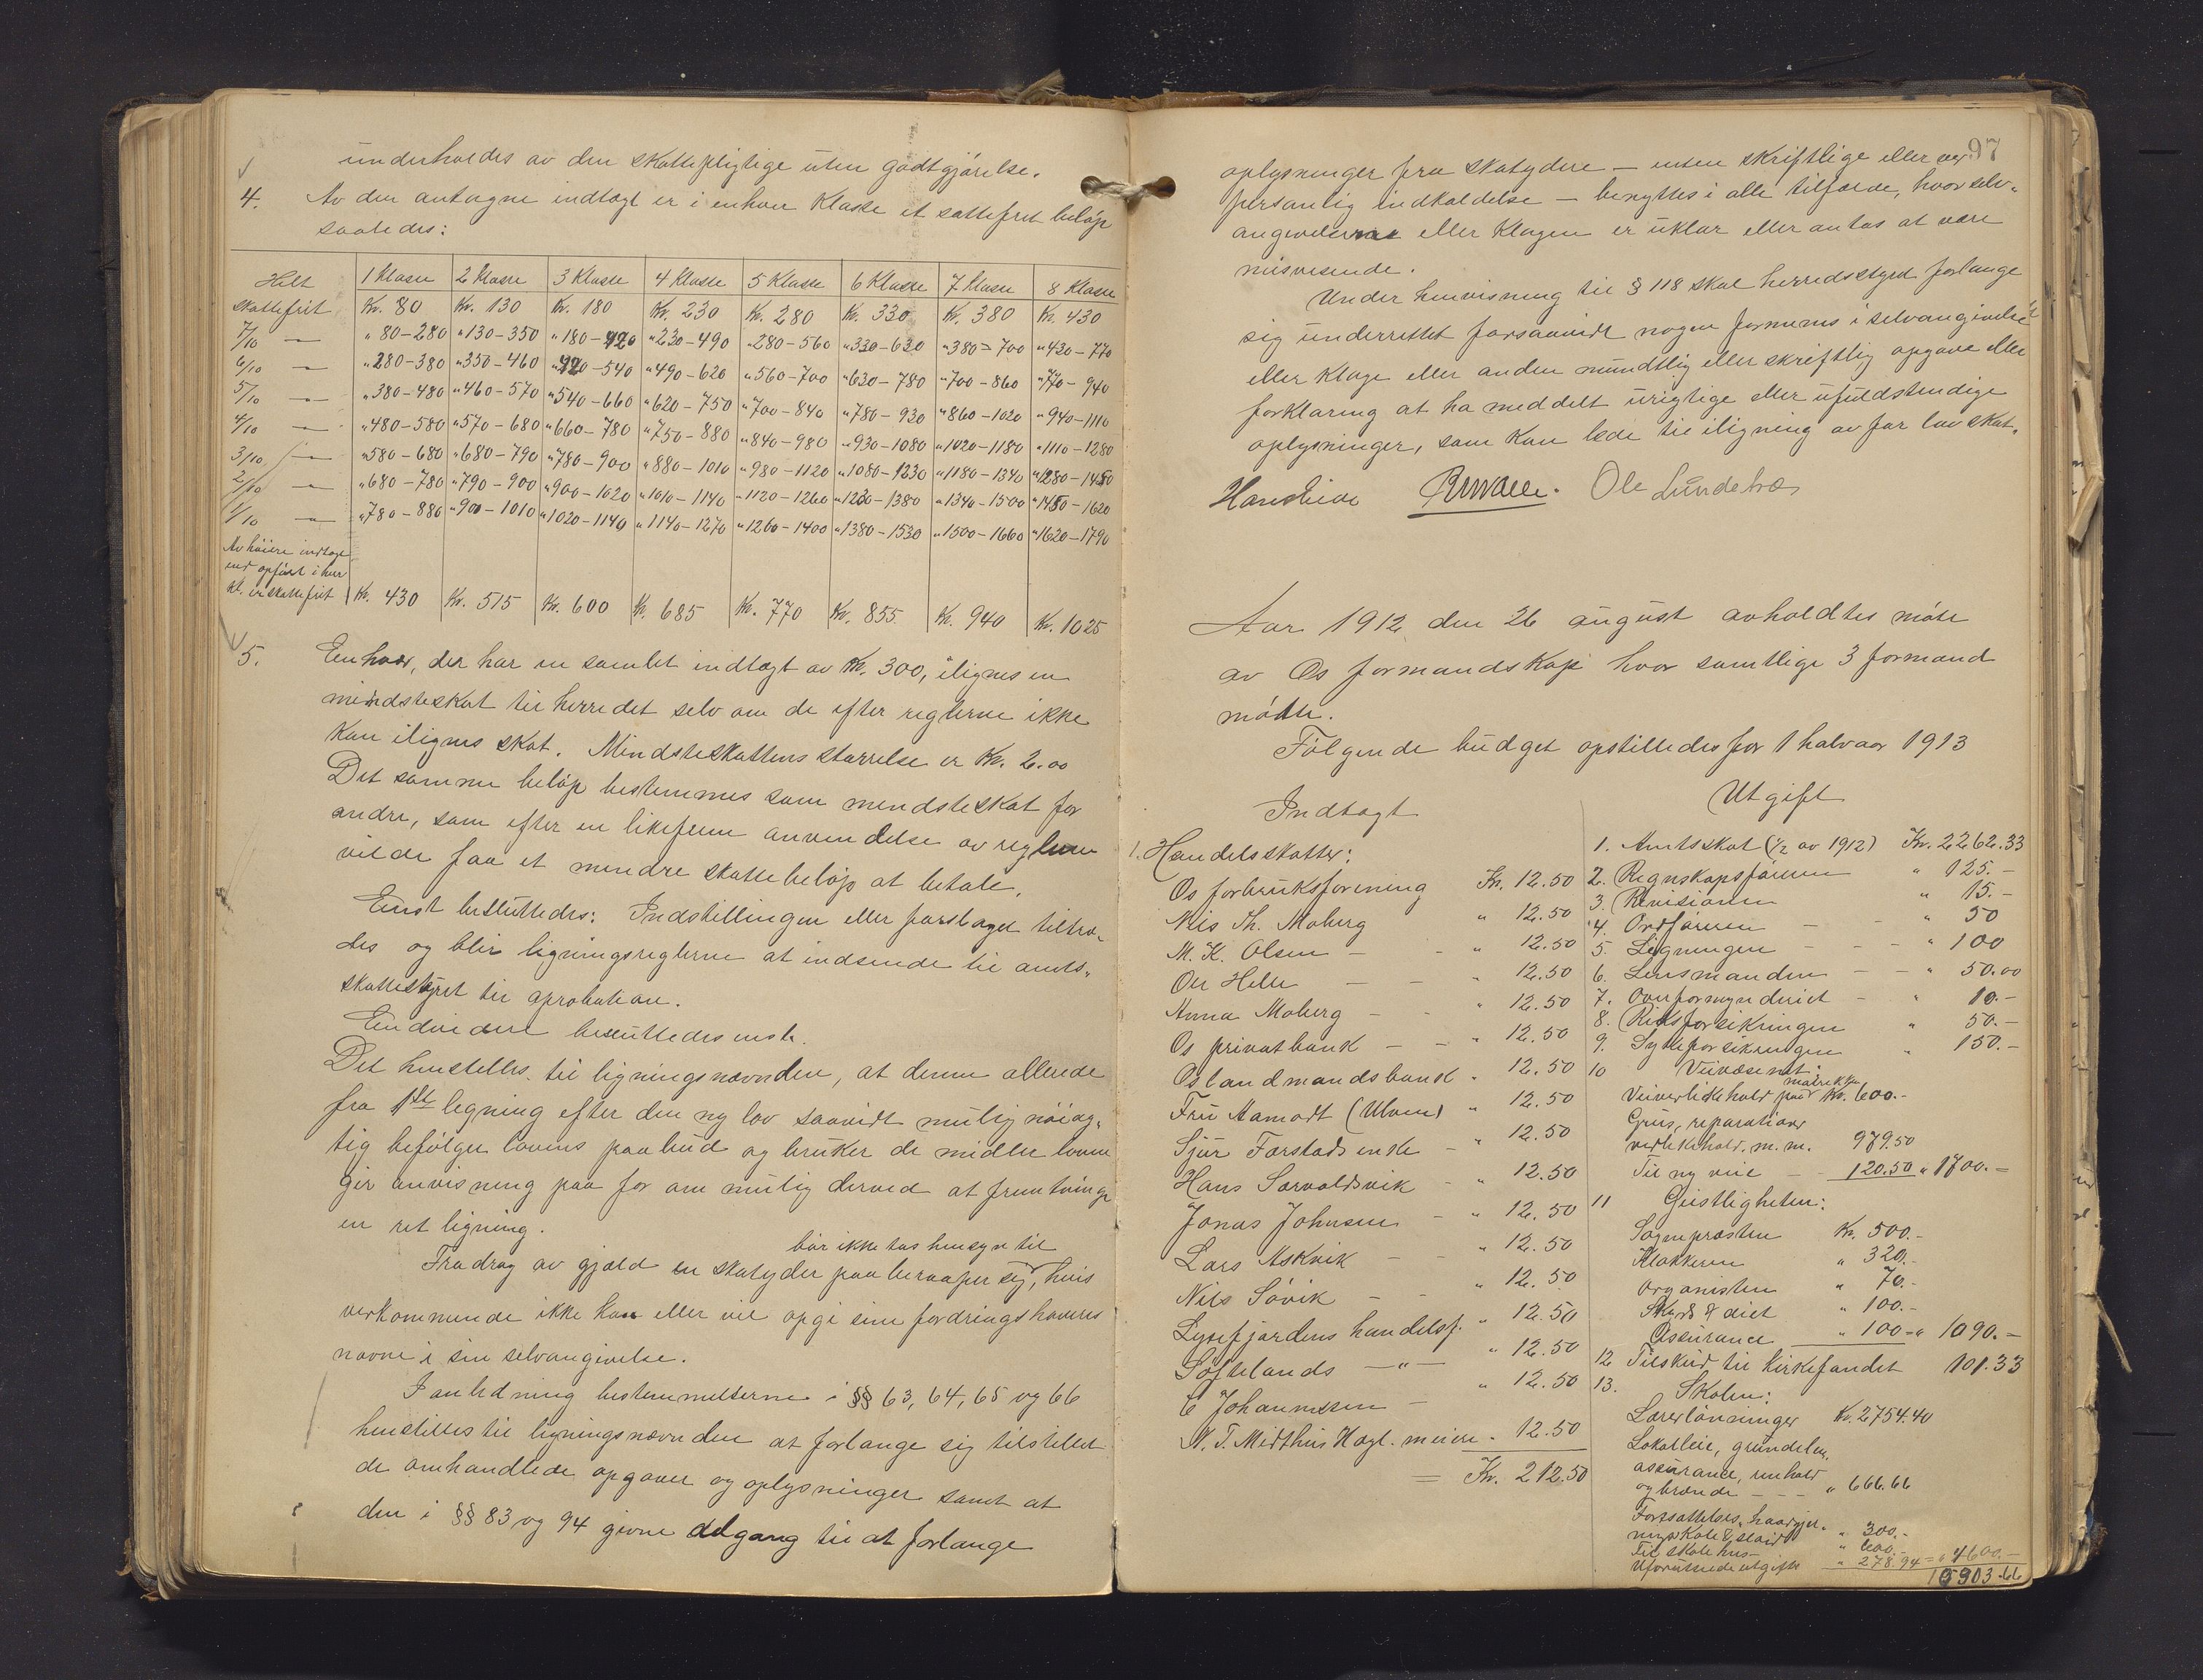 underholdes av den skattepligtige uten godtgjørelse.
4. Av den antagne indtægt er i enhver Klasse et skattefrit beløp
saaledes:
Helt 1 Klasse 2 Klasse 3 Klasse 4 Klasse 5 Klasse 6 Klasse 7 Klasse 8 Klasse
skattefrit Kr. 80 Kr. 130 Kr. 180 Kr. 230 Kr. 280 Kr. 330 Kr. 380 Kr. 430
7/10 — " 80-280 " 130-350 " 180-420 " 230-490 " 280-560 " 330-630 " 380-700 " 430-770
6/10 — " 280-380 " 350-460 " 420-540 " 490-620 " 560-700 " 630-780 " 700-860 " 770-940
5/10 — " 380-480 " 460-570 " 540-660 " 620-750 " 700-840 " 780-930 " 860-1020 " 940-1110
4/10 — " 480-580 " 570-680 " 660-780 " 750-880 " 840-980 " 930-1080 " 1020-1180 " 1110-1280
3/10 — " 580-680 " 680-790 " 780-900 " 880-1010 " 980-1120 " 1080-1230 " 1180-1340 " 1280-1450
2/10 — " 680-780 " 790-900 " 900-1020 " 1010-1140 " 1120-1260 " 1230-1380 " 1340-1500 " 1450-1620
1/10 — " 780-880 " 900-1010 " 1020-1140 " 1140-1270 " 1260-1400 " 1380-1530 " 1500-1660 " 1620-1790
Av høiere indtægt
end opført i hver
kl. er skattefrit Kr. 430 Kr. 515 Kr. 600 Kr. 685 Kr. 770 Kr. 855 Kr. 940 Kr. 1025
5. Enhver, der har en samlet indtægt av Kr. 300, ilignes en
mindsteskat til herredet selv om de efter reglerne ikke
kan ilignes skat. Mindsteskattens størrelse er Kr. 2.00
Det samme beløp bestemmes som mendsteskat for
andre, som efter en likefrem anvendelse av reglerne
vilde faa et mindre skattebeløp at betale.
Enst besluttedes: Indstillingen eller forslaget tiltræ-
des og blir ligningsreglerne at indsende til amts-
skattestyret til aprobation.
Endvidere besluttedes enst.
Det henstilles til ligningsnævnden, at denne allerede
fra 1ste legning efter den ny lov saavidt mulig nøiag-
tig befølger lovens paabud og bruker de midler loven
gir anvisning paa for om mulig derved at fremtvinge
en ret ligning.
bør ikke tas hensyn til
Fradrag av gjæld en skatyder paaberaaper sig, hvis
vedkommende ikke kan eller vil opgi sine fordringshaveres
navne i sin selvangivelse.
I anledning bestemmelserne i §§ 63, 64, 65 og 66
henstilles til ligningsnævnden at forlange sig tilstillet
de omhandlede opgaver og oplysninger samt at
den i §§ 83 og 94 givne adgang til at forlange
97
oplysninger fra skatydere — enten skriftlige eller ved
personlig indkaldelse — benyttes i alle tilfælde, hvor selv-
angivelserne eller klagen er uklar eller antas at være
misvisende.
Under henvisning til § 118 skal herredsstyret forlange
sig underrettet forsaavidt nogen formenes i selvangivelse
eller klage eller anden mundtlig eller skriftlig opgave eller
forklaring at ha meddelt urigtige eller ufuldstendige
oplysninger, som kan lede til iligning av for lav skat.
Hans Ole Lundetræ
Aar 1912 den 26 august avholdtes møte
av Os formandskap hvor samtlige 3 formænd
møtte.
Følgende budget opstilledes for 1 halvaar 1913
Indtægt
1. Handelsskatter:
Os forbruksforening Kr. 12.50
Nils Th. Moberg " 12.50
M. K. Olsen — " 12.50
Ole Helle — — " 12.50
Anna Moberg — " 12.50
Os privatbank — — " 12.50
Os landmandsbank " 12.50
Fru Aamodt (Ulven) " 12.50
Sjur Forstads enke — " 12.50
Hans Sørvoldsvik — " 12.50
Jonas Johnsen — " 12.50
Lars Askvik — — " 12.50
Nils Søvik — — " 12.50
Lysefjordens handelsf. " 12.50
Søftelands —"— " 12.50
E Johannessen — " 12.50
N. T. Midthus Hagl. meieri " 12.50
= Kr. 212.50
Utgift
1. Amtsskat (1/2 av 1912) Kr. 2262.33
2. Regnskapsføreren " 125.—
3. Revisionen " 15.—
4. Ordføreren — — " 50
5. Legningen — — — " 100
6. Lensmanden — — " 50.00
7. Overformynderiet — " 10.—
8. Riksforsikringen " 50.—
9. Sykeforsikringen " 150.—
10 Veivæsenet:
Veivedlikehold paa matrikken Kr. 600.—
Grus, reparationer
vedlikehold m. m. 979.50
Til ny veie — — 120.50 " 1700.—
11 Geistligheten:
Sognepræsten Kr. 500.—
Klokkeren " 320.—
Organisten " 70.—
Skyds & diet " 100.—
Assurance " 100 = " 1090.—
12 Tilskud til Kirkefondet 101.33
13. Skolen:
Lærerlønninger Kr. 2754.40
Lokalleie, grundleie,
assurance, renhold
og brænde — — — " 666.66
Fortsættelses, haandgjer-
ningsskole & sløid " 300.—
Til skolehus — " 600.—
Uforutsedte utgifter " 278.94 = " 4600.—
10303.66